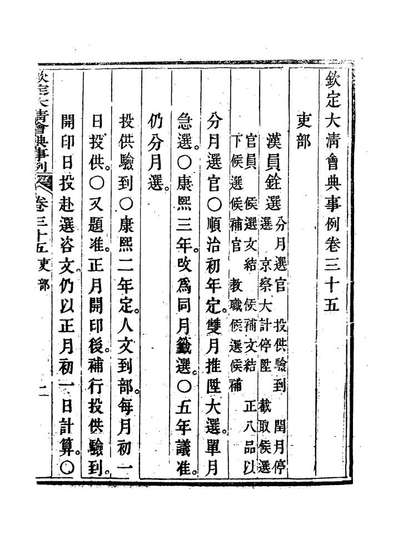 欽定大清會典事例卷三十五
吏部
漢員銓選
分月選官 投供驗到 閏月停
選 京察大計停陞 截取候選
官員 候選文結 候補文結 正八品以
下候選候補官 教職候選候補
分月選官。○順治初年定。雙月推陞大選。單月
急選。○康熙三年。改爲同月籤選。○五年議准。
仍分月選。
投供驗到。○康熙二年定。人文到部。每月初一
日投供。○又題准。正月開印後。補行投供驗到。
開印日投赴選咨文。仍以正月初一日計算。○
欽定大清會典事例 卷三十五 吏部 一